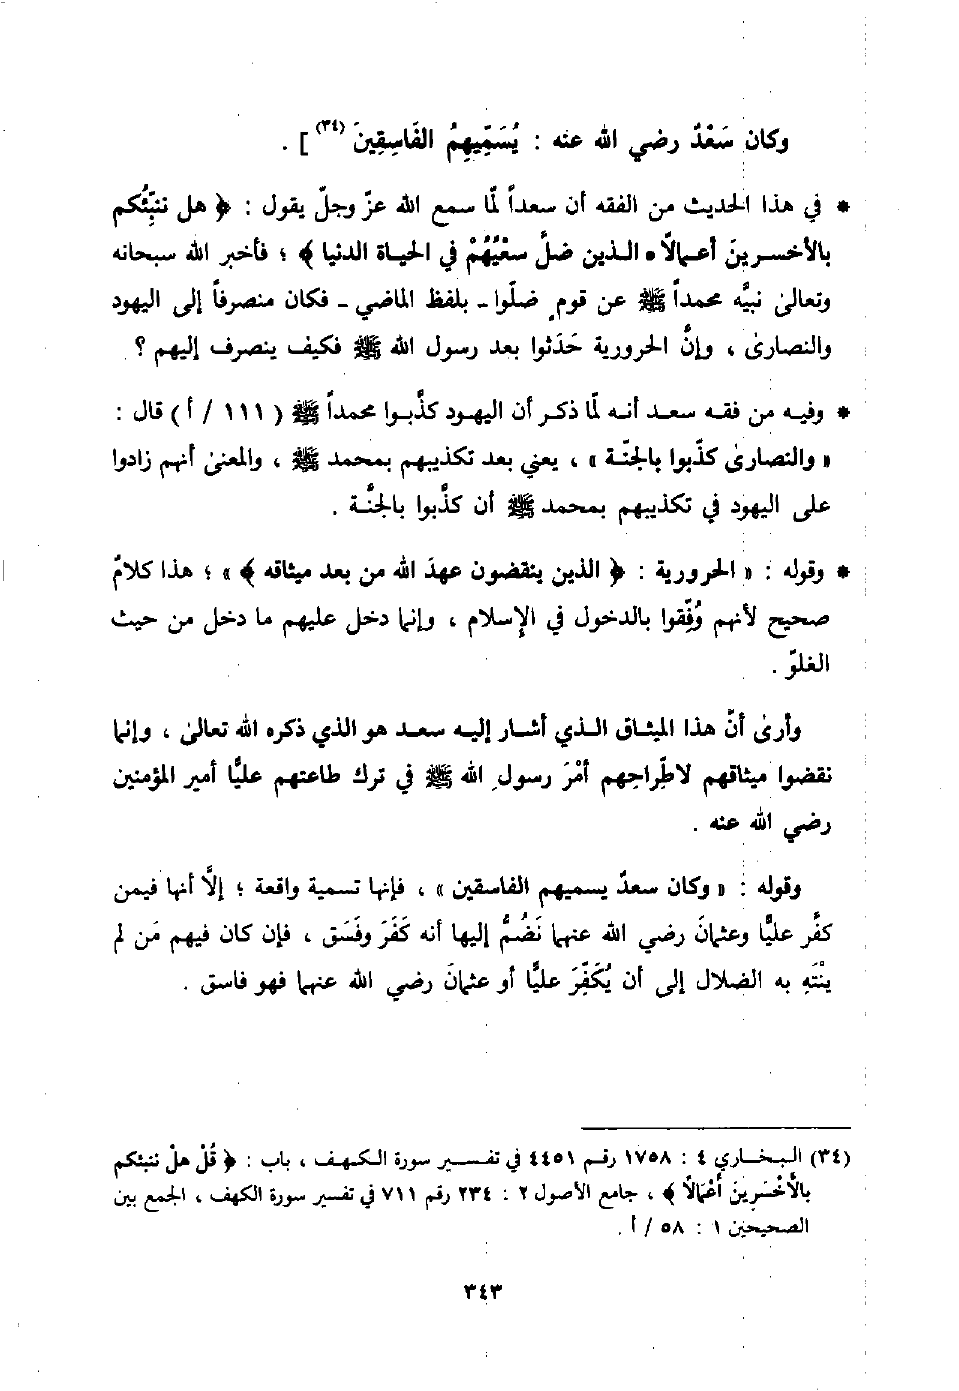 وكان سَعْدٌ رضي الله عنه : يُسَمِّيهِمُ الفَاسِقِينَ (٣٤) ] .
* في هذا الحديث من الفقه أن سعداً لمّا سمع الله عزّ وجلّ يقول : ﴿ هل ننبِّئُكم
بالأخسرينَ أعمالاً * الذين ضلَّ سعْيُهُمْ في الحياة الدنيا ﴾ ؛ فأخبر الله سبحانه
وتعالىٰ نبيَّه محمداً ﷺ عن قومٍ ضلّوا - بلفظ الماضي - فكان منصرفاً إلى اليهود
والنصارىٰ ، وإنَّ الحرورية حَدَثوا بعد رسول الله ﷺ فكيف ينصرف إليهم ؟
* وفيه من فقه سعد أنه لمّا ذكر أن اليهود كذَّبوا محمداً ﷺ ( ١١١ / أ ) قال :
« والنصارىٰ كذّبوا بالجنّة » ، يعني بعد تكذيبهم بمحمد ﷺ ، والمعنىٰ أنهم زادوا
على اليهود في تكذيبهم بمحمد ﷺ أن كذَّبوا بالجنَّة .
* وقوله : « الحرورية : ﴿ الذين ينقضون عهدَ الله من بعد ميثاقه ﴾ » ؛ هذا كلامٌ
صحيح لأنهم وُفِّقوا بالدخول في الإسلام ، وإنما دخل عليهم ما دخل من حيث
الغلوّ .
وأرىٰ أنَّ هذا الميثاق الذي أشار إليه سعد هو الذي ذكره الله تعالىٰ ، وإنما
نقضوا ميثاقهم لاطِّراحِهم أمْرَ رسولِ الله ﷺ في ترك طاعتهم عليًّا أمير المؤمنين
رضي الله عنه .
وقوله : « وكان سعدٌ يسميهم الفاسقين » ، فإنها تسمية واقعة ؛ إلَّا أنها فيمن
كفَّر عليًّا وعثمانَ رضي الله عنهما نَضُمُّ إليها أنه كَفَرَ وفَسَق ، فإن كان فيهم مَن لم
ينْتَهِ به الضلال إلى أن يُكَفِّرَ عليًّا أو عثمانَ رضي الله عنهما فهو فاسق .
(٣٤) البخاري ٤ : ١٧٥٨ رقم ٤٤٥١ في تفسير سورة الكهف ، باب : ﴿ قُلْ هلْ ننبئكم
بالْأَخْسَرِينَ أَعْمَالاً ﴾ ، جامع الأصول ٢ : ٢٣٤ رقم ٧١١ في تفسير سورة الكهف ، الجمع بين
الصحيحين ١ : ٥٨ / أ .
٣٤٣